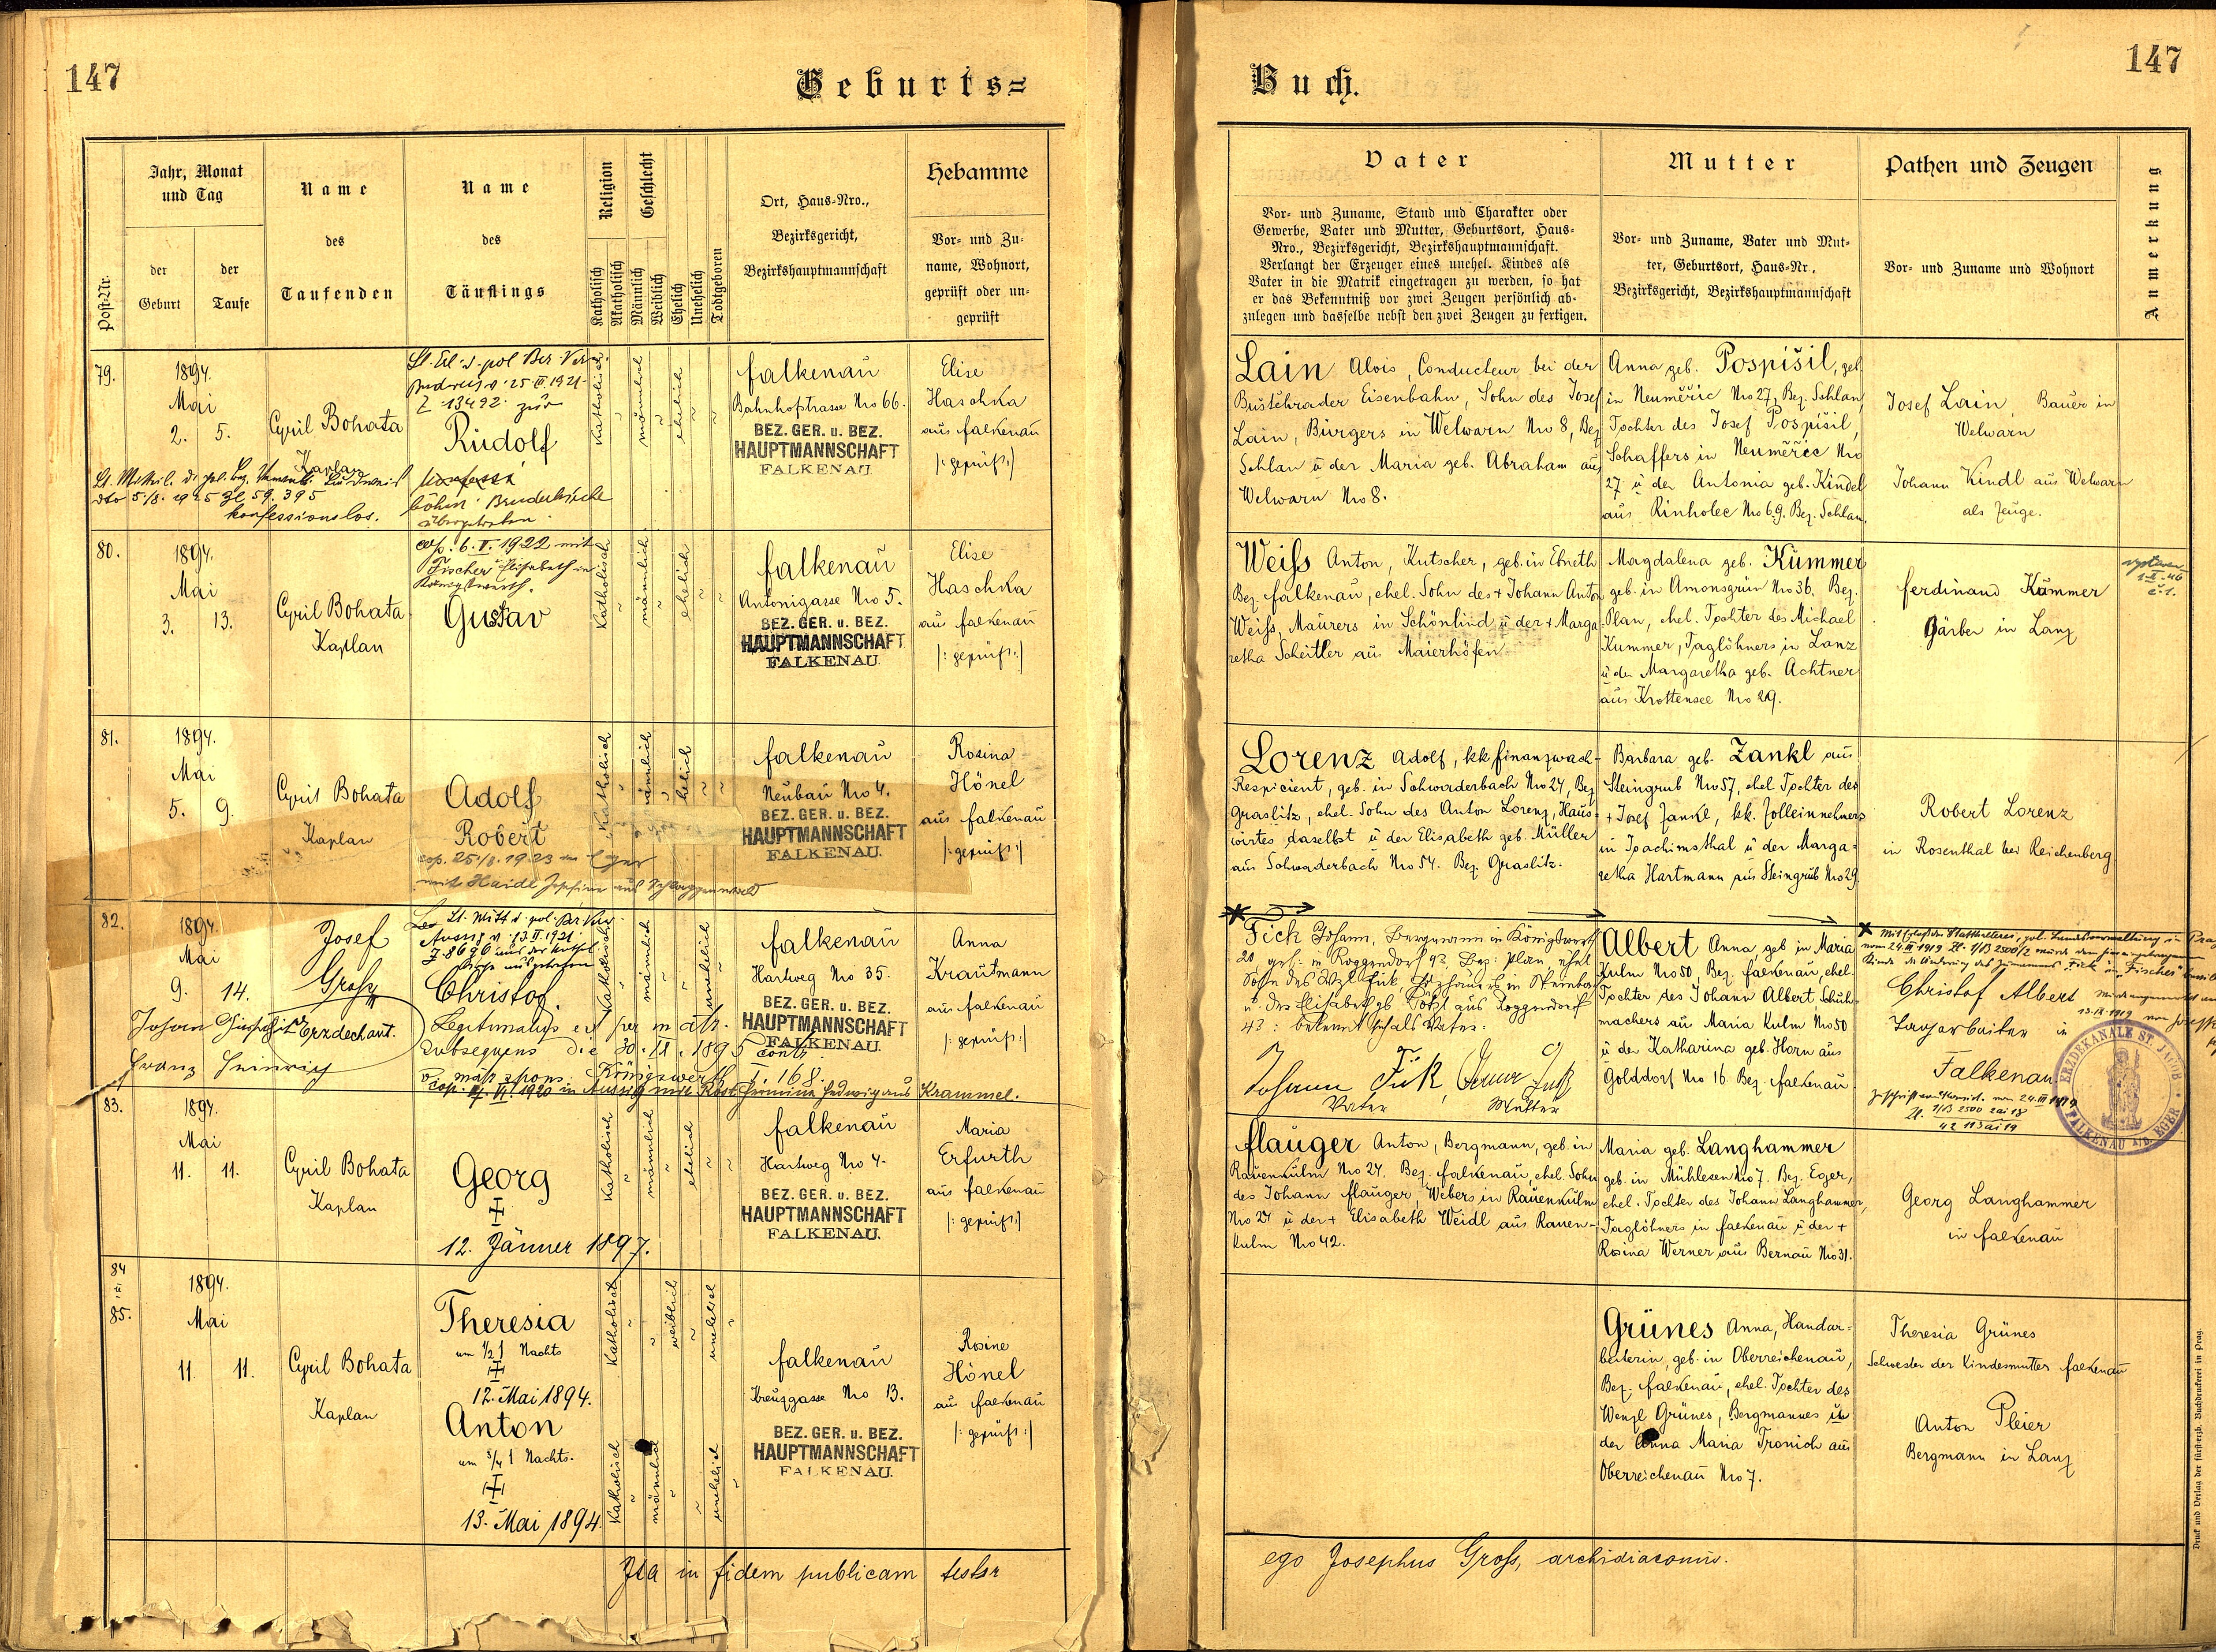 147
Geburts=
Jahr, Monat
und Tag
der
Geburt
der
Taufe
Post-Nr.
Name
des
Taufenden
Name
des
Täuflings
Religion
Geschlecht
Katholisch
Akatholisch
Männlich
Weiblich
Ehelich
Unehelich
Todtgeboren
Ort, Haus-Nro.,
Bezirksgericht,
Bezirkshauptmannschaft
Hebamme
Vor- und Zu-
name, Wohnort,
geprüft oder un-
geprüft
79.
1894.
Mai
2. 5.
Cyril Bohata
Kaplan
v. 25. 1921
Z. 13492. zur
Rudolf
böhm. Bruderkirche
übergetreten.
konfessionslos.
Katholisch
männlich
ehelich
Falkenau
Bahnhofstrasse Nro 66.
BEZ. GER. u. BEZ.
HAUPTMANNSCHAFT
FALKENAU.
Elise
Haschka
aus Falkenau
|: geprüft :|
80.
1894.
Mai
3. 13.
Cyril Bohata
Kaplan
cop. 6. V. 1922 mit
Fischer Elisabeth in
Königswerth.
Gustav
Katholisch
männlich
ehelich
Falkenau
Antonigasse Nro 5.
BEZ. GER. u. BEZ.
HAUPTMANNSCHAFT
FALKENAU.
Elise
Haschka
aus Falkenau
|: geprüft :|
81.
1894.
Mai
5. 9.
Cyril Bohata
Kaplan
Adolf
Robert
cop. 25/8. 1923 in Eger
mit Haidl Josefine aus Schlaggenwald
Katholisch
männlich
ehelich
Falkenau
Neubau Nro 4.
BEZ. GER. u. BEZ.
HAUPTMANNSCHAFT
FALKENAU.
Rosina
Hönel
aus Falkenau
|: geprüft :|
82.
1894.
Mai
9. 14.
Josef
Gross
Erzdechant.
Johann
Franz Heinrich
Christof.
Legitimatus est per m atr.
subsequens die 30. 1895
Königswerth I. 168.
1920 in Aussig mit Hedwig aus Krammel.
Katholisch
männlich
unehelich
Falkenau
Hartweg Nro 35.
BEZ. GER. u. BEZ.
HAUPTMANNSCHAFT
FALKENAU.
Anna
Krautmann
aus Falkenau
|: geprüft :|
83.
1894.
Mai
11. 11.
Cyril Bohata
Kaplan
Georg
12. Jänner 1897.
Katholisch
männlich
ehelich
Falkenau
Hartweg Nro 4.
BEZ. GER. u. BEZ.
HAUPTMANNSCHAFT
FALKENAU.
Maria
Erfurth
aus Falkenau
|: geprüft :|
84
u.
85.
1894.
Mai
11. 11.
Cyril Bohata
Kaplan
Theresia
um 1/2 1 Nachts
12. Mai 1894.
Anton
um 3/4 1 Nachts.
13. Mai 1894.
Katholisch
weiblich
unehelich
Katholisch
männlich
unehelich
Falkenau
Kreuzgasse Nro 13.
BEZ. GER. u. BEZ.
HAUPTMANNSCHAFT
FALKENAU.
Rosine
Hönel
aus Falkenau
|: geprüft :|
Ita in fidem publicam testor
Buch.
147
Vater
Vor- und Zuname, Stand und Charakter oder
Gewerbe, Vater und Mutter, Geburtsort, Haus-
Nro., Bezirksgericht, Bezirkshauptmannschaft.
Verlangt der Erzeuger eines unehel. Kindes als
Vater in die Matrik eingetragen zu werden, so hat
er das Bekenntniß vor zwei Zeugen persönlich ab-
zulegen und dasselbe nebst den zwei Zeugen zu fertigen.
Mutter
Vor- und Zuname, Vater und Mut-
ter, Geburtsort, Haus-Nr.,
Bezirksgericht, Bezirkshauptmannschaft
Pathen und Zeugen
Vor- und Zuname und Wohnort
Anmerkung
Lain Alois, Conducteur bei der
Buštěhrader Eisenbahn, Sohn des Josef
Lain, Bürgers in Welwarn Nro 8, Bez.
Schlan u der Maria geb. Abraham aus
Welwarn Nro 8.
Anna geb. Pospišil, geb.
in Neuměřic Nro 27, Bez. Schlan,
Tochter des Josef Pospišil,
Schaffers in Neuměřic Nro
27 u der Antonia geb. Kindel
aus Rinholec Nro 69. Bez. Schlan.
Josef Lain, Bauer in
Welwarn
Johann Kindl aus Welwarn
als Zeuge.
Weiss Anton, Kutscher, geb. in Ebneth
Bez. Falkenau, ehel. Sohn des + Johann Anton
Weiss, Maurers in Schönlind u der + Marga-
retha Scheitler aus Maierhöfen
Magdalena geb. Kummer
geb. in Amonsgrün Nro 36, Bez.
Plan, ehel. Tochter des Michael
Kummer, Taglöhners in Lanz
u der Margaretha geb. Achtner
aus Krottensee Nro 29.
Ferdinand Kummer
Gärber in Lanz
Lorenz Adolf, kk. Finanzwach-
Respicient, geb. in Schwaderbach Nro 24, Bez.
Graslitz, ehel. Sohn des Anton Lorenz, Haus-
wirtes daselbst u der Elisabeth geb. Müller
aus Schwaderbach Nro 54. Bez. Graslitz.
Barbara geb. Zankl aus
Steingrub Nro 57, ehel. Tochter des
+ Josef Zankl, kk. Zolleinnehmers
in Joachimsthal u der Marga-
retha Hartmann aus Steingrub Nro 29.
Robert Lorenz
in Rosenthal bei Reichenberg
Fick Johann, Bergmann in Königswerth
20, geb. in Roggendorf 42 Bez: Plan, ehel.
u. der Elisabeth gb. aus Roggendorf
42: bekennt sich als Vater:
Johann Fick
Vater
Mutter
Albert Anna geb in Maria
Kulm Nro 50, Bez. Falkenau, ehel.
Tochter des Johann Albert, Schuh-
machers aus Maria Kulm Nro 50
u der Katharina geb. Horn aus
Golddorf Nro 16. Bez. Falkenau.
Christof Albert
in
Falkenau
ERZDEKANALE ST. JACOB
FALKENAU A/D. EGER
Flauger Anton, Bergmann, geb. in
Rauenkulm Nro 24. Bez. Falkenau, ehel. Sohn
des Johann Flauger, Webers in Rauenkulm
Nro 24 u der + Elisabeth Weidl aus Rauen-
kulm Nro 42.
Maria geb. Langhammer
geb. in Mühlesen Nro 7. Bez. Eger,
ehel. Tochter des Johann Langhammer,
Taglöhners in Falkenau u der +
Rosina Werner aus Bernau Nro 31.
Georg Langhammer
in Falkenau
Grünes Anna, Handar-
beiterin, geb. in Oberreichenau,
Bez. Falkenau, ehel. Tochter des
Wenzl Grünes, Bergmannes u
der Anna Maria Tronich aus
Oberreichenau Nro 7.
Theresia Grünes
Schwester der Kindesmutter Falkenau
Anton Pleier
Bergmann in Lanz
ego Josephus Gross, archidiaconus.
Druck und Verlag der fürsterzb. Buchdruckerei in Prag.